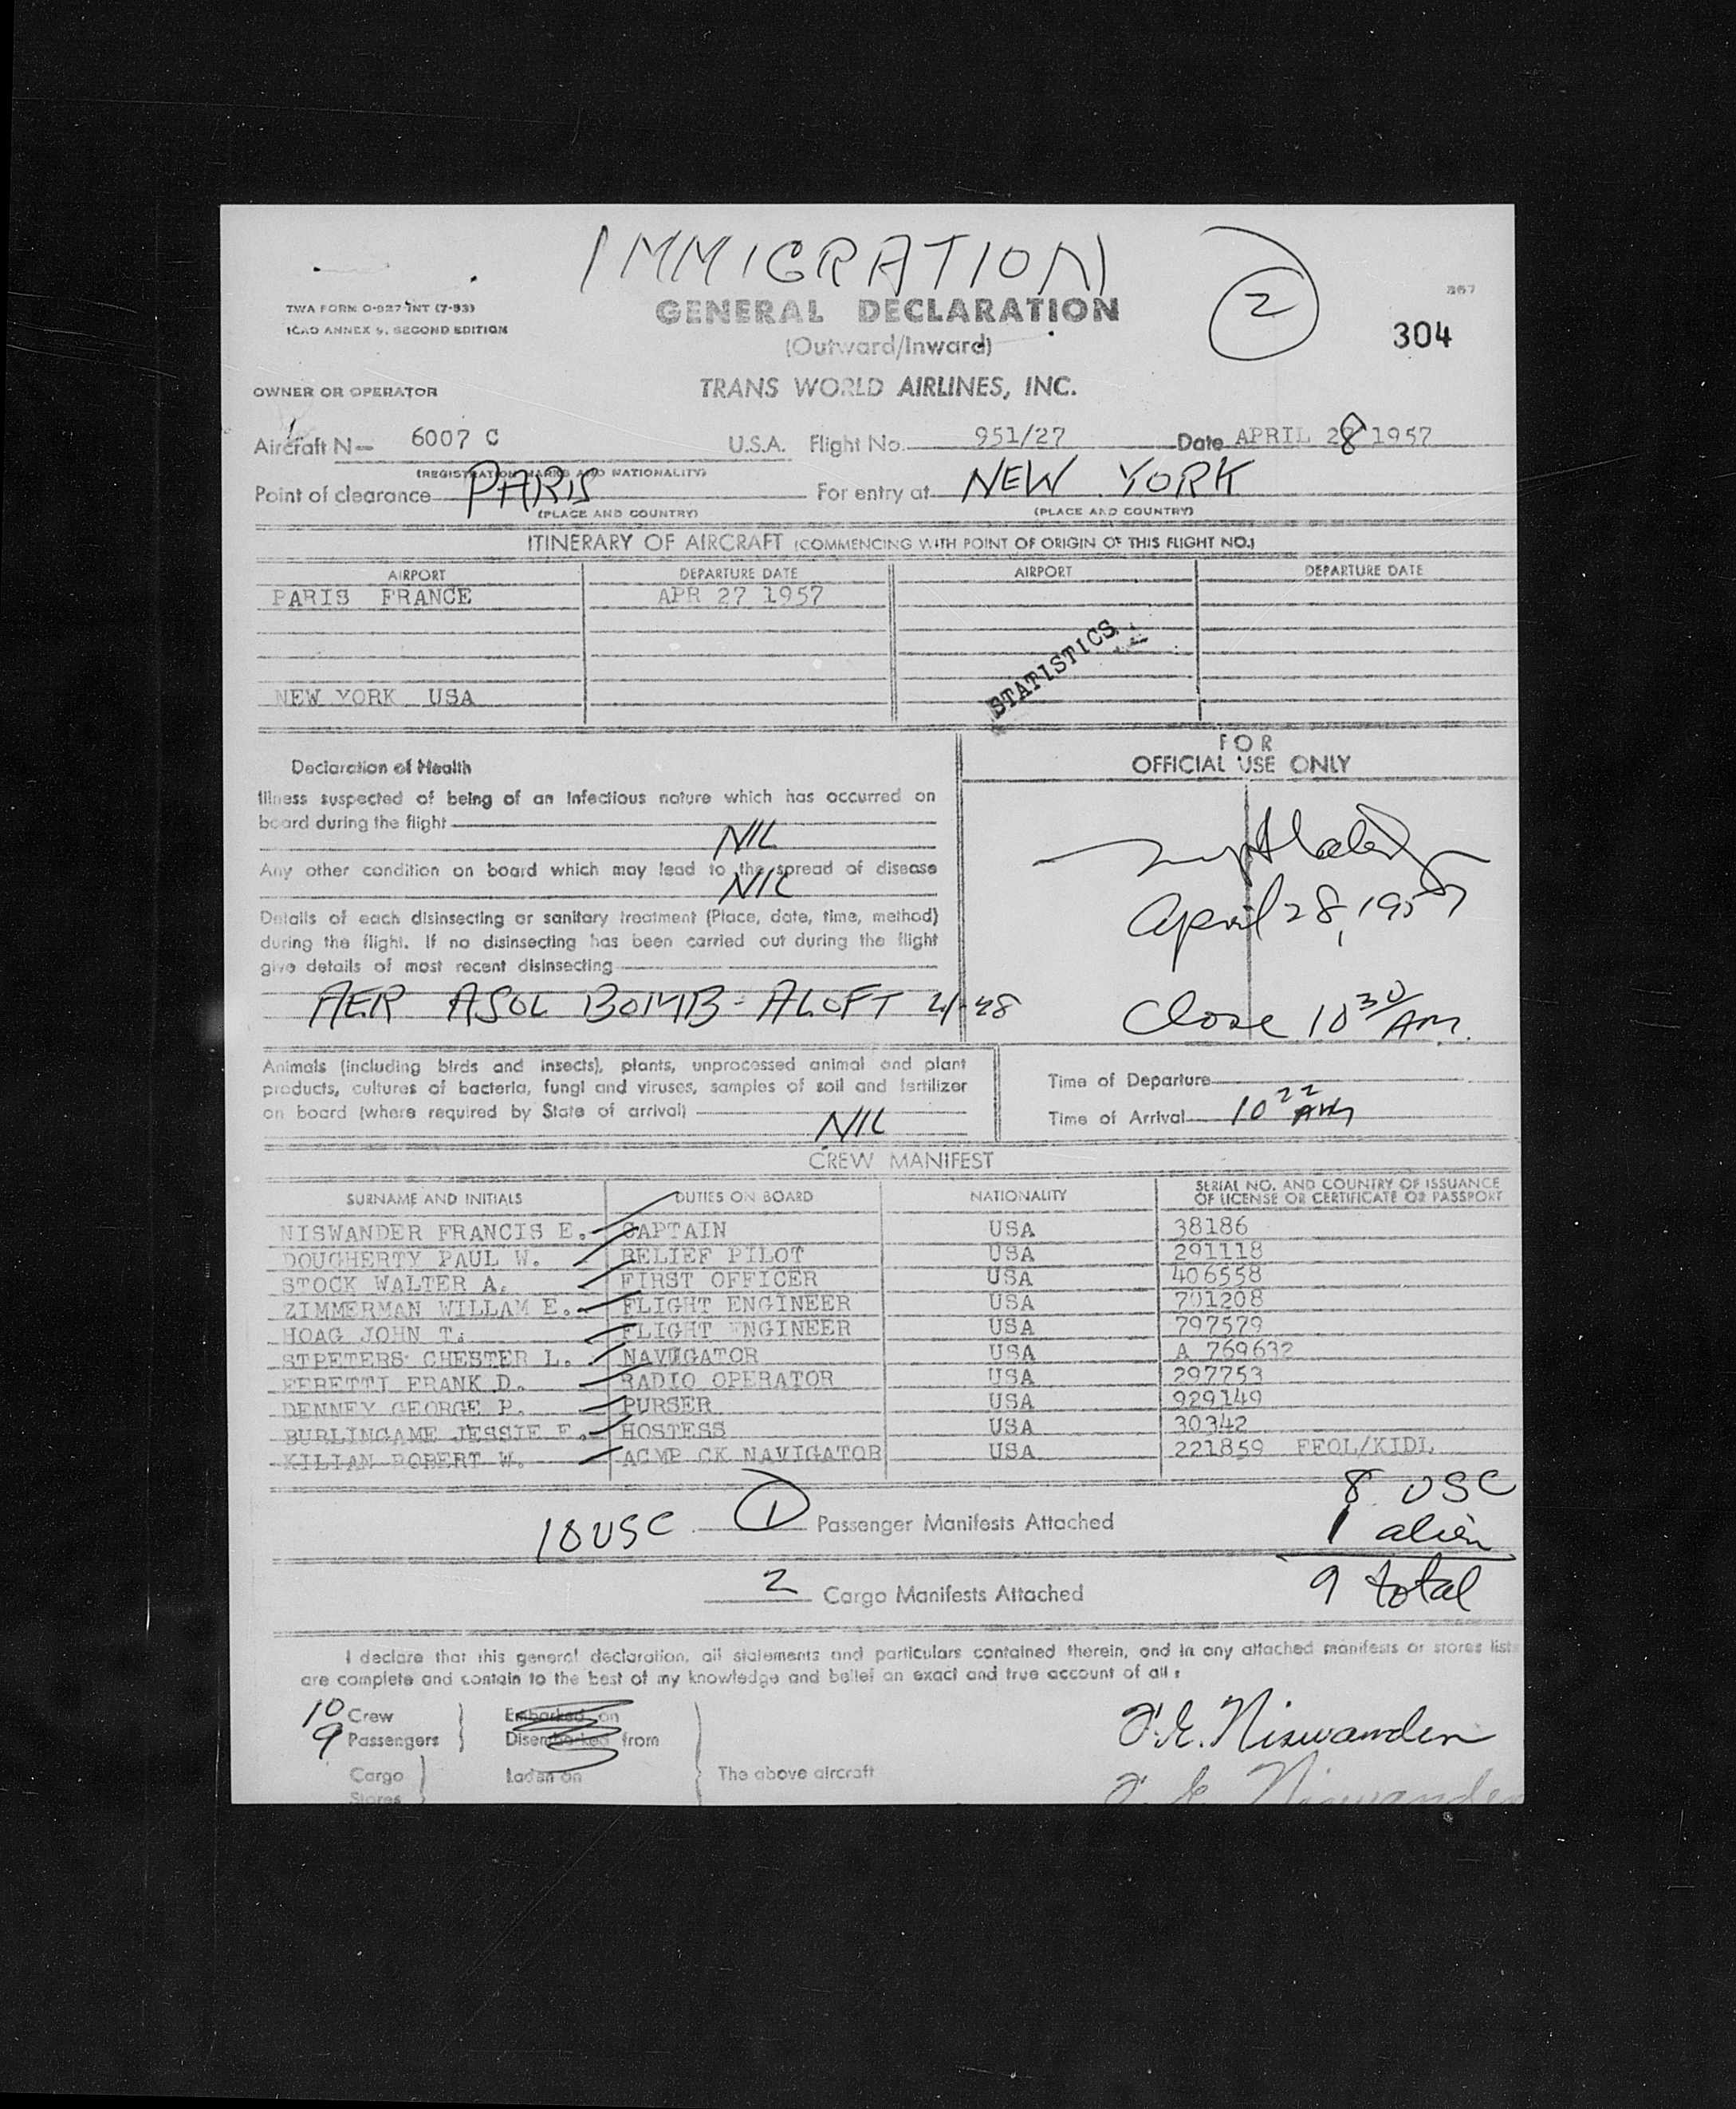 IMMIGRATION
2
867
304
TWA FORM O-927 INT (7-53)
ICAO ANNEX 9, SECOND EDITION
GENERAL DECLARATION
(Outward/Inward)
OWNER OR OPERATOR TRANS WORLD AIRLINES, INC.
Aircraft N— 6007 C U.S.A. Flight No. 951/27 Date APRIL 28 1957
(REGISTRATION MARKS AND NATIONALITY)
Point of clearance PARIS For entry at NEW YORK
(PLACE AND COUNTRY) (PLACE AND COUNTRY)
ITINERARY OF AIRCRAFT (COMMENCING WITH POINT OF ORIGIN OF THIS FLIGHT NO.)
AIRPORT DEPARTURE DATE AIRPORT DEPARTURE DATE
PARIS FRANCE APR 27 1957
STATISTICS
NEW YORK USA
FOR
OFFICIAL USE ONLY
Declaration of Health
Illness suspected of being of an infectious nature which has occurred on
board during the flight
NIL
Any other condition on board which may lead to the spread of disease
NIL
Details of each disinsecting or sanitary treatment (Place, date, time, method)
during the flight. If no disinsecting has been carried out during the flight
give details of most recent disinsecting
AER ASOL BOMB - ALOFT 4-28
April 28, 1957
Close 10 30/AM.
Animals (including birds and insects), plants, unprocessed animal and plant
products, cultures of bacteria, fungi and viruses, samples of soil and fertilizer
on board (where required by State of arrival)
NIL
Time of Departure
Time of Arrival 10 22 AM
CREW MANIFEST
SURNAME AND INITIALS DUTIES ON BOARD NATIONALITY SERIAL NO. AND COUNTRY OF ISSUANCE
OF LICENSE OR CERTIFICATE OR PASSPORT
NISWANDER FRANCIS E. CAPTAIN USA 38186
DOUGHERTY PAUL W. RELIEF PILOT USA 291118
STOCK WALTER A. FIRST OFFICER USA 406558
ZIMMERMAN WILLAM E. FLIGHT ENGINEER USA 701208
HOAG JOHN T. FLIGHT ENGINEER USA 797579
STPETERS CHESTER L. NAVIGATOR USA A 769632
FERETTI FRANK D. RADIO OPERATOR USA 297753
DENNEY GEORGE P. PURSER USA 929149
BURLINGAME JESSIE E. HOSTESS USA 30342
KILIAN ROBERT W. ACMP CK NAVIGATOR USA 221859 FEOL/KIDL
8 USC
10 USC 1 Passenger Manifests Attached 1 alien
2 Cargo Manifests Attached 9 total
I declare that this general declaration, all statements and particulars contained therein, and in any attached manifests or stores lists
are complete and contain to the best of my knowledge and belief an exact and true account of all:
10 Crew Embarked on
9 Passengers Disembarked from
F.E. Niswander
Cargo Laden on The above aircraft
Stores
F E Niswander